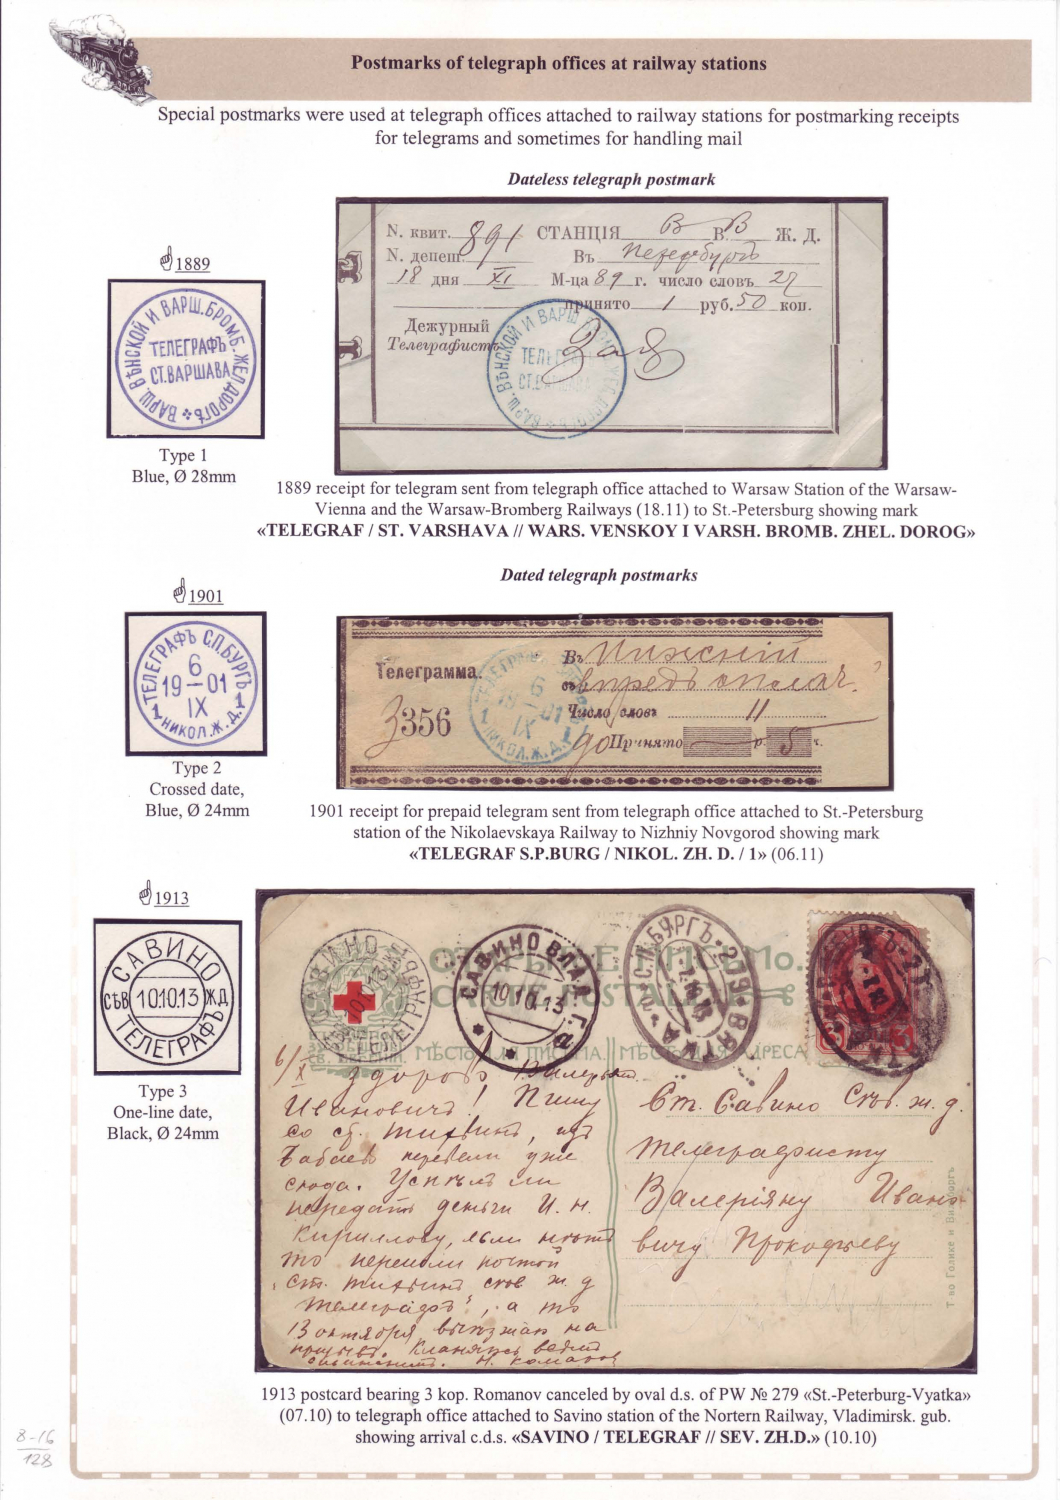 Postmarks of telegraph offices at railway stations
Special postmarks were used at telegraph offices attached to railway stations for postmarking receipts
for telegrams and sometimes for handling mail
Dateless telegraph postmark
1889
ВАРШ. ВѢНСКОЙ И ВАРШ. БРОМБ. ЖЕЛ. ДОРОГЪ
ТЕЛЕГРАФЪ
СТ. ВАРШАВА
Type 1
Blue, Ø 28mm
N. квит. 891 СТАНЦІЯ В В. В Ж. Д.
N. депеш. Въ Петербургъ
18 дня XI М-ца 89 г. число словъ 27
принято 1 руб. 50 коп.
Дежурный
Телеграфистъ
ВАРШ. ВѢНСКОЙ И ВАРШ.
ТЕЛЕГРАФЪ
СТ. ВАРШАВА
1889 receipt for telegram sent from telegraph office attached to Warsaw Station of the Warsaw-
Vienna and the Warsaw-Bromberg Railways (18.11) to St.-Petersburg showing mark
«TELEGRAF / ST. VARSHAVA // WARS. VENSKOY I VARSH. BROMB. ZHEL. DOROG»
Dated telegraph postmarks
1901
ТЕЛЕГРАФЪ С.П.БУРГЪ
6
19–01
IX
1 НИКОЛ. Ж. Д. 1
Type 2
Crossed date,
Blue, Ø 24mm
Телеграмма
3356
Въ Нижній
Число словъ 11
Принято р. 5 к.
6
19–01
IX
1 НИКОЛ. Ж. Д. 1
1901 receipt for prepaid telegram sent from telegraph office attached to St.-Petersburg
station of the Nikolaevskaya Railway to Nizhniy Novgorod showing mark
«TELEGRAF S.P.BURG / NIKOL. ZH. D. / 1» (06.11)
1913
САВИНО
СѢВ 101013 ЖД
ТЕЛЕГРАФЪ
Type 3
One-line date,
Black, Ø 24mm
ОТКРЫТОЕ ПИСЬМО.
CARTE POSTALE
САВИНО ВЛАД. Г.
101013
а
С.П.БУРГЪ-279-ВЯТКА
МѢСТО ДЛЯ ПИСЬМА. МѢСТО ДЛЯ АДРЕСА
6/X Здоровъ Валерьян
Ивановичъ! Пишу
со ст. Тихвинъ, изъ
Бабаево перевели уже
сюда. Успѣлъ ли
передать деньги И. Н.
Кириллову, если нѣтъ
то перешли почтой
ст. Тихвинъ сѣв ж. д
Телеграфъ, а то
13 октября выѣзжаю на
призывъ. Кланяюсь
Ст. Савино Сѣв. ж. д.
Телеграфисту
Валеріяну Ивано-
вичу Прокофьеву
Т-во Голике и Вильборгъ
1913 postcard bearing 3 kop. Romanov canceled by oval d.s. of PW № 279 «St.-Peterburg-Vyatka»
(07.10) to telegraph office attached to Savino station of the Nortern Railway, Vladimirsk. gub.
showing arrival c.d.s. «SAVINO / TELEGRAF // SEV. ZH.D.» (10.10)
8-16
128